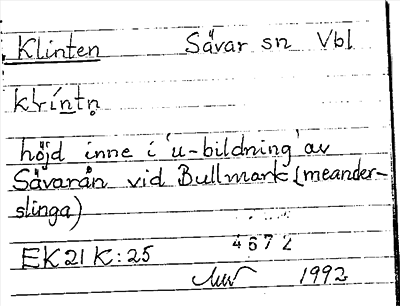 Klinten Sävar sn Vbl
klíntn̥
höjd inne i 'u-bildning' av
Sävarån vid Bullmark (meander-
slinga)
4672
EK21K:25
1992